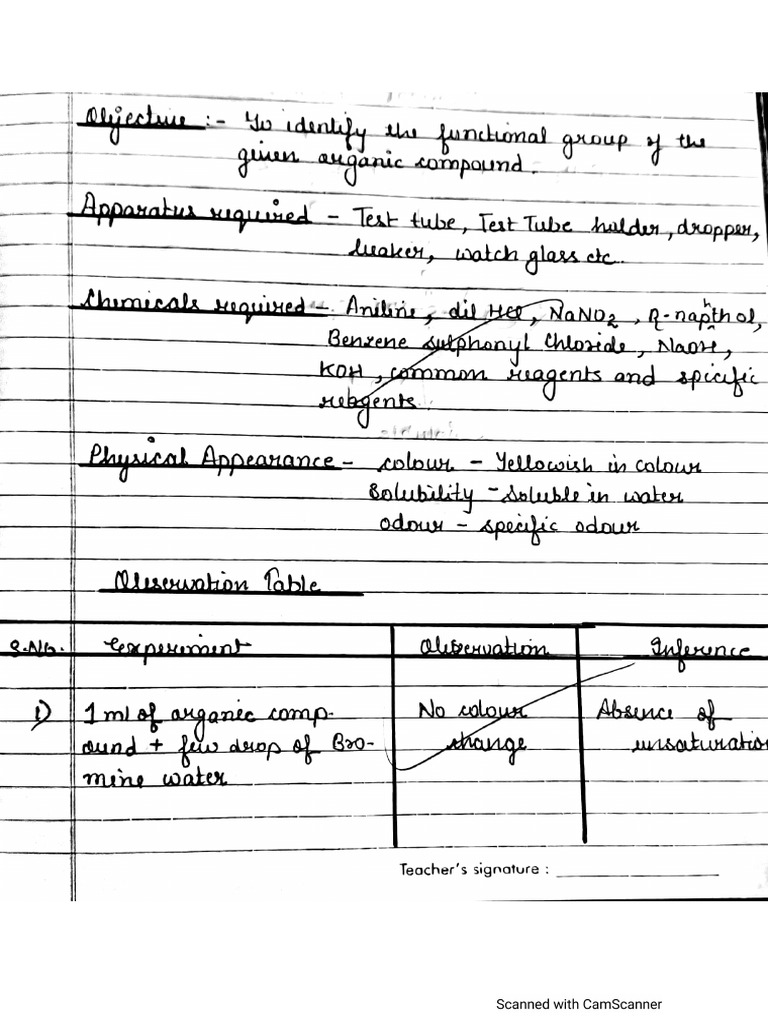 Objective :- To identify the functional group of the
given organic compound.
Apparatus required - Test tube, Test Tube holder, dropper,
beaker, watch glass etc.
Chemicals required - Aniline, dil HCl, NaNO2, β-naphthol,
Benzene sulphonyl Chloride, NaOH,
KOH, common reagents and spicific
reagents
Physical Appearance - colour - Yellowish in colour
Solubility - Soluble in water
odour - specific odour
Observation Table
S.No. Experiment Observation Inference
1) 1 ml of organic comp- No colour Absence of
ound + few drop of Bro- change unsaturation
mine water
Teacher's signature :
Scanned with CamScanner